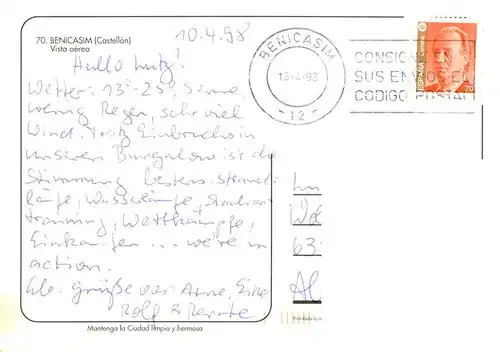 70. BENICASIM (Castellón)
Vista aérea
10.4.98
Hallo Lutz!
Wetter: 13°-25°, Sonne,
wenig Regen, sehr viel
Wind. Trotz Einbruchs in
unseren Bungalow ist die
Stimmung bestens. Strand-
läufe, Wasserläufe, Stadion-
training, Wettkämpfe,
Einkaufen ... we're in
action.
Lb. Grüße von Arne, Eike
Rolf & Renate
Mantenga la Ciudad limpia y hermosa
BENICASIM
-12-
CONSIGNE EN
SUS ENVIOS EL
CODIGO POSTAL
ESPAÑA
70
63